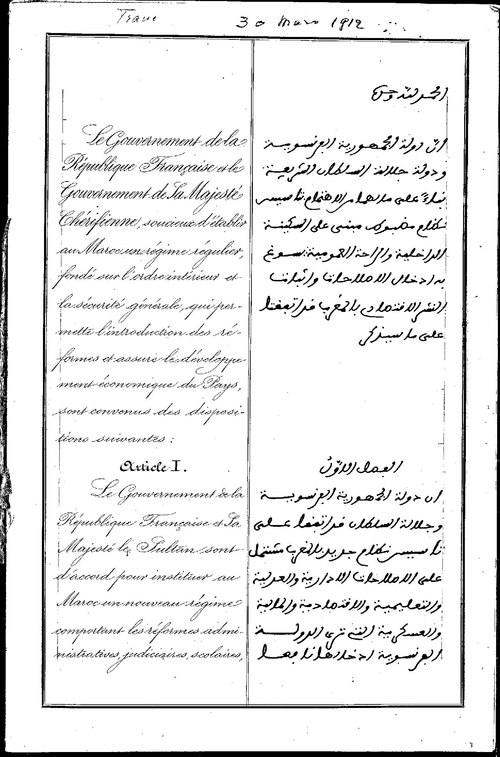 30 Mars 1912
Le Gouvernement de la
République Française et le
Gouvernement de Sa Majesté
Chérifienne, soucieux d'établir
au Maroc un régime régulier,
fondé sur l'ordre intérieur et
la sécurité générale, qui per-
mette l'introduction des ré-
formes et assure le développe
ment économique du Pays,
sont convenus des disposi-
tions suivantes :
Article I.
Le Gouvernement de la
République Française et Sa
Majesté le Sultan sont
d'accord pour instituer au
Maroc un nouveau régime
comportant les réformes admi-
nistratives, judiciaires, scolaires,
الحمد لله وحده
ان دولة الجمهورية الفرنسوية
ودولة جلالة السلطان الشريفية
بناء على ما لهما من الاهتمام بتاسيس
نظام مضبوط مبني على السكينة
الداخلية والراحة العمومية يسوغ
به ادخال الاصلاحات واثبات
النشر الاقتصادي بالمغرب قد اتفقتا
على ما سيذكر
الفصل الاول
ان دولة الجمهورية الفرنسوية
وجلالة السلطان قد اتفقا على
تاسيس نظام جديد بالمغرب مشتمل
على الاصلاحات الادارية والعدلية
والتعليمية والاقتصادية والمالية
والعسكرية التي ترى الدولة
الفرنسوية ادخالها نافعا